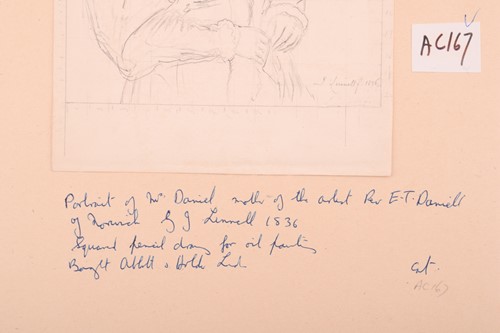 AC167
J. Linnell f. 1836
Portrait of Mrs. Daniel mother of the artist Rev E-T-Daniell
of Norwich by J Linnell 1836
Squared pencil drawing for oil painting
Bought Abbott & Holder Ltd
Cat.
AC167